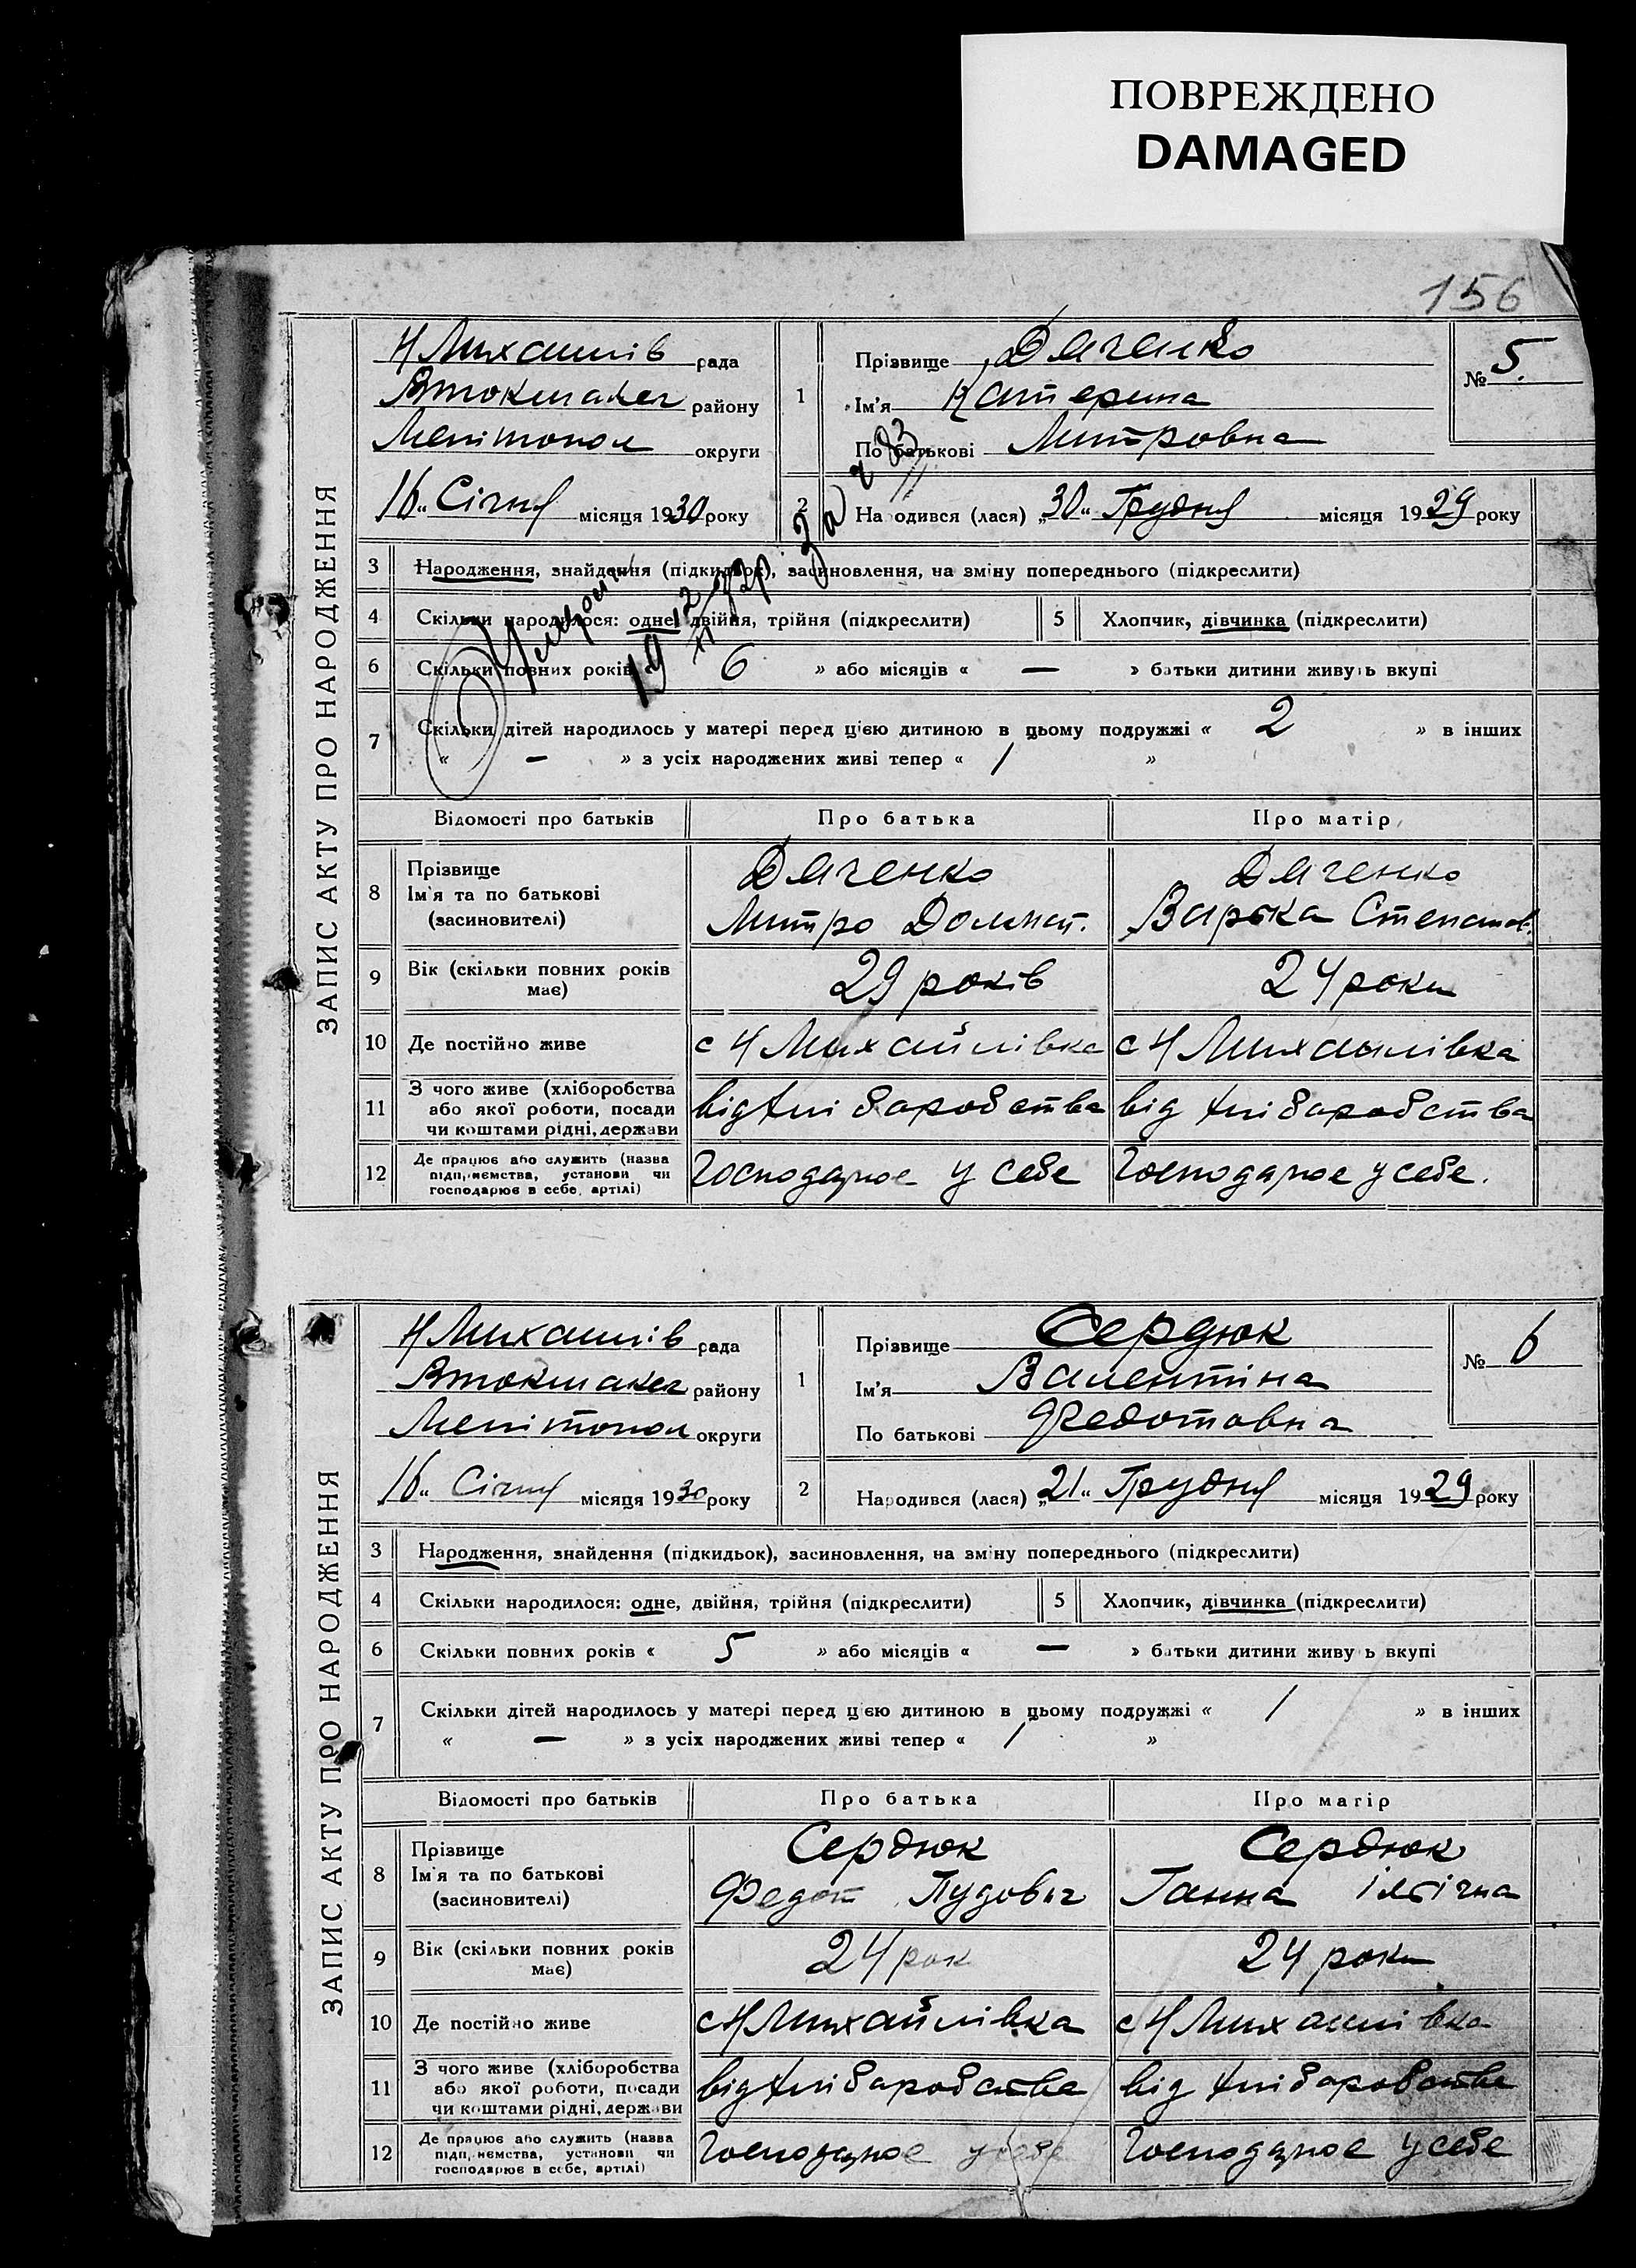 ПОВРЕЖДЕНО
DAMAGED
156
ЗАПИС АКТУ ПРО НАРОДЖЕННЯ
Н Михайлів рада
Втокмакск району
Мелітопол округи
16 „ Січня місяця 1930 року
1
Прізвище Дяченко
Ім'я Катерина
По батькові Митровна
№ 5.
2 Народився (лася) „30“ Грудня місяця 1929 року
3 Народження, знайдення (підкидьок), засиновлення, на зміну попереднього (підкреслити)
4 Скільки народилося: одне, двійня, трійня (підкреслити) 5 Хлопчик, дівчинка (підкреслити)
6 Скільки повних років « 6 » або місяців « — » батьки дитини живуть вкупі
7 Скільки дітей народилось у матері перед цією дитиною в цьому подружжі « 2 » в інших
« — » з усіх народжених живі тепер « 1 »
Відомості про батьків Про батька Про матір
8 Прізвище Дяченко Дяченко
Ім'я та по батькові Митро Варька Степанов.
(засиновителі)
9 Вік (скільки повних років має) 29 років 24 роки
10 Де постійно живе с Н Михайлівка с Н Михайлівка
11 З чого живе (хліборобства або якої роботи, посади чи коштами рідні, держави від хліборобства від хліборобства
12 Де працює або служить (назва підприємства, установи чи господарює в себе, артілі) Господарює у себе Господарює у себе.
ЗАПИС АКТУ ПРО НАРОДЖЕННЯ
Н Михайлів рада
Втокмакск району
Мелітопол округи
16 „ Січня місяця 1930 року
1
Прізвище Сердюк
Ім'я Валентіна
По батькові Федотовна
№ 6
2 Народився (лася) „21“ Грудня місяця 1929 року
3 Народження, знайдення (підкидьок), засиновлення, на зміну попереднього (підкреслити)
4 Скільки народилося: одне, двійня, трійня (підкреслити) 5 Хлопчик, дівчинка (підкреслити)
6 Скільки повних років « 5 » або місяців « — » батьки дитини живуть вкупі
7 Скільки дітей народилось у матері перед цією дитиною в цьому подружжі « 1 » в інших
« — » з усіх народжених живі тепер « 1 »
Відомості про батьків Про батька Про матір
8 Прізвище Сердюк Сердюк
Ім'я та по батькові Федот Пудович Ганна Ілічна
(засиновителі)
9 Вік (скільки повних років має) 24 рок 24 роки
10 Де постійно живе с Н Михайлівка с Н Михайлівка
11 З чого живе (хліборобства або якої роботи, посади чи коштами рідні, держави від хліборобства від хліборобства
12 Де працює або служить (назва підприємства, установи чи господарює в себе, артілі) Господарює у себе Господарює у себе